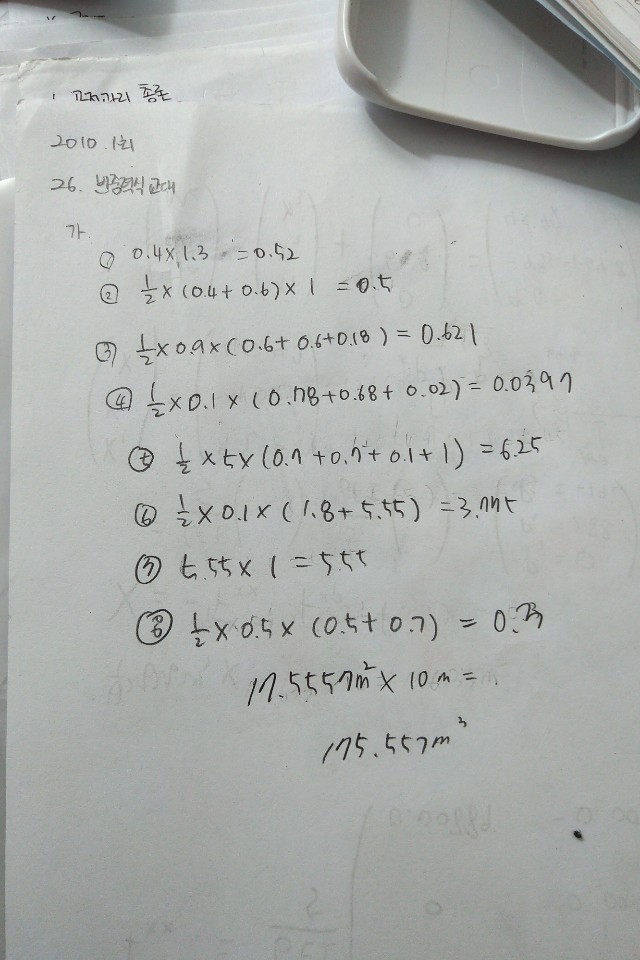 2010.1회
26. 반중력식 교대
가
① 0.4×1.3 = 0.52
② 1/2 × (0.4+0.6)×1 = 0.5
③ 1/2×0.9×(0.6+0.6+0.18) = 0.621
④ 1/2×0.1×(0.78+0.68+0.02) = 0.0397
⑤ 1/2×5×(0.7+0.7+0.1+1) = 6.25
⑥ 1/2×0.1×(1.8+5.55) = 3.775
⑦ 5.55×1 = 5.55
⑧ 1/2×0.5×(0.5+0.7) =
17.5557m²×10m =
175.557m³